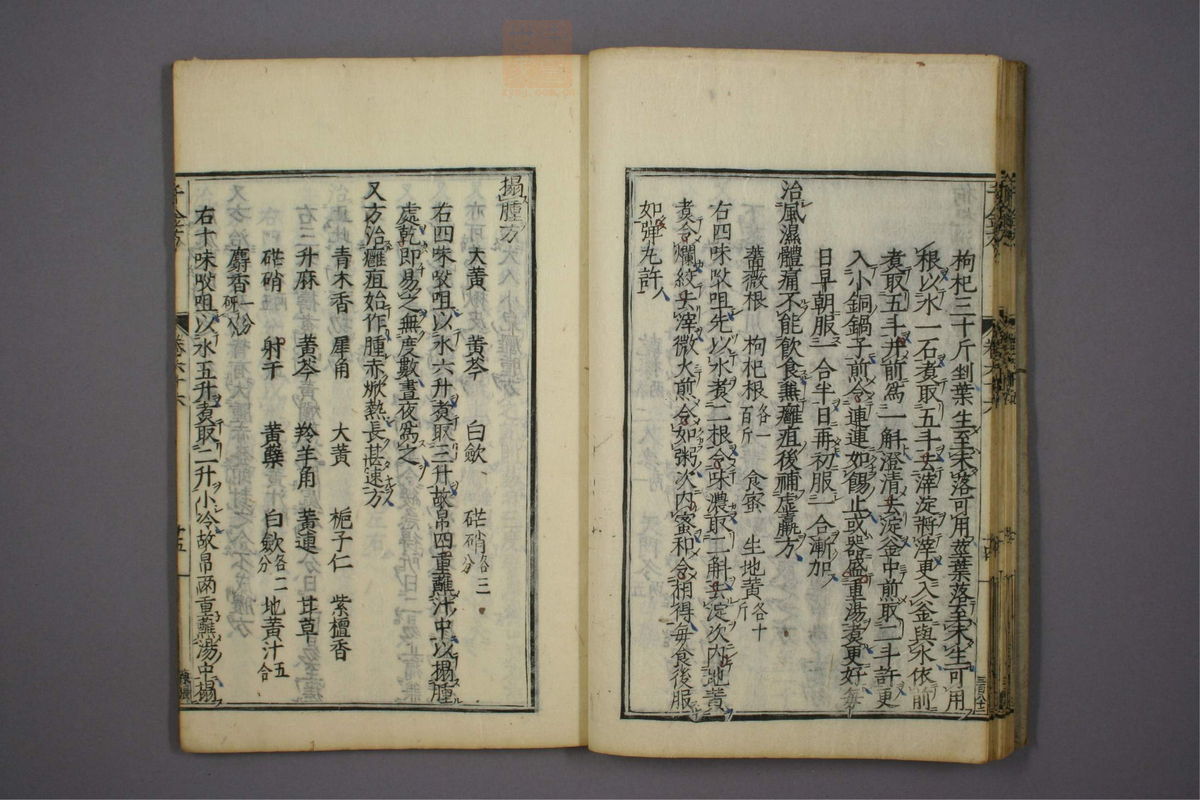 枸杞三十斤剉葉生至未落可用莖葉落至未生可用
根以水一石煮取五斗去滓淀將滓更入釜與水依前
煮取五斗并前爲一斛澄清去淀釜中煎取二斗許更
入小銅鍋子煎令連連如餳止或器盛重湯煮更好每
日早朝服二合半日再初服一合漸加
治風濕體痛不能飲食兼癰疽後補虛羸方
薔薇根 枸杞根各一百斤 食蜜 生地黃各十斤
右四味㕮咀先以水煮二根令味濃取二斛去淀次內地黃
煮令爛絞去滓微火煎令如粥次內蜜和令相得每食後服
如彈丸許
千金方 卷六十六 十四
搨腫方
大黃 黃芩 白歛 硭硝各三分
右四味㕮咀以水六升煮取三升故帛四重蘸汁中以搨腫
處乾即易之無度數晝夜爲之
又方治癰疽始作腫赤焮熱長甚速方
青木香 犀角 大黃 梔子仁 紫檀香
升麻 黃芩 羚羊角 黃連 甘草
硭硝 射干 黃蘗 白歛各二分 地黃汁五合
麝香一分研入
右十味㕮咀以水五升煮取二升小冷故帛兩重蘸湯中搨
千金方 卷六十六 十五